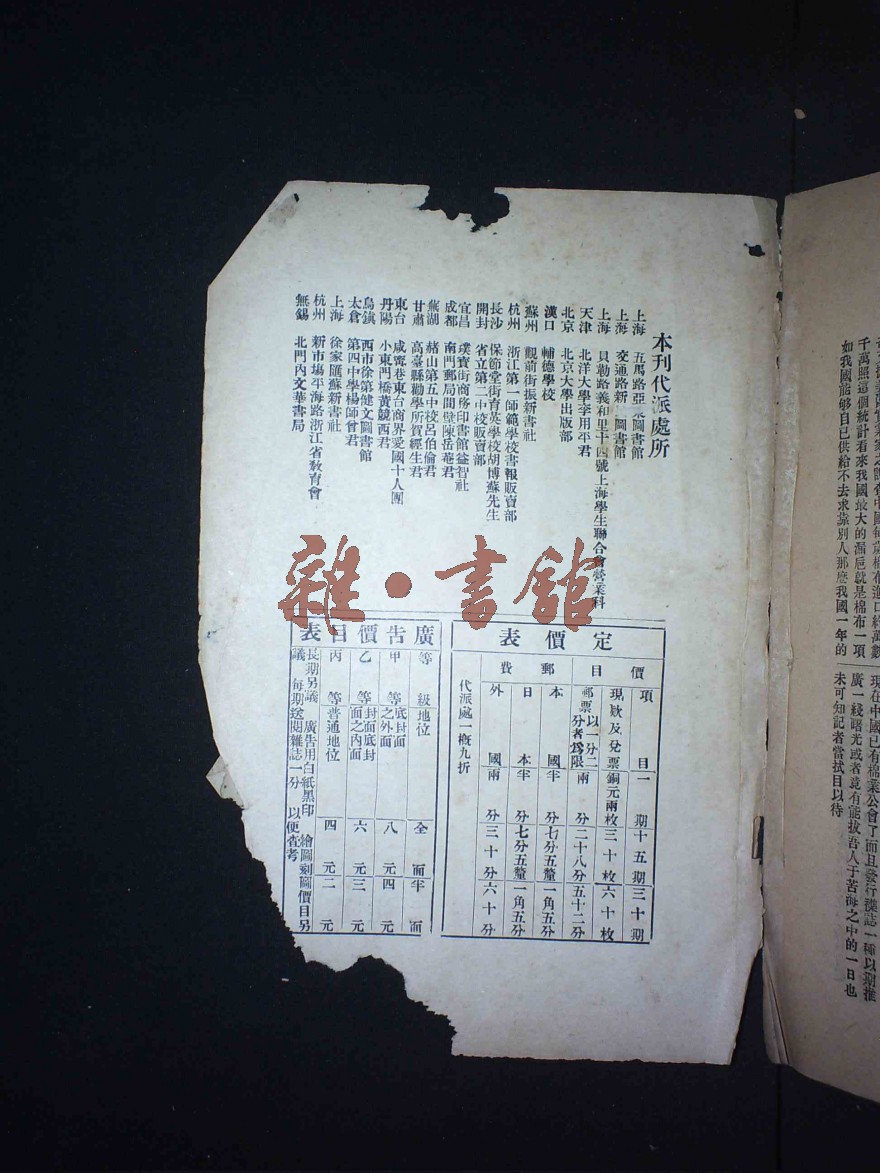 千萬照這個統計看來我國最大的漏巵就是棉布一項
如我國能够自已供給不去求靠別人那麽我國一年的
現在中國已有棉業公會了而且發行襍誌一種以期推
廣一綫曙光或者竟有能拔吾人于苦海之中的一日也
未可知記者當拭目以待
本刊代派處所
上海 五馬路亞東圖書館
上海 交通路新 圖書館
上海 貝勒路義和里十四號上海學生聯合會營業科
天津 北洋大學李用平君
北京 北京大學出版部
漢口 輔德學校
蘇州 觀前街振新書社
杭州 浙江第一師範學校書報販賣部
長沙 保節堂街育英學校胡博蘇先生
開封 省立第二中校販賣部
宜昌 璞寶街商務印書館益智社
成都 南門郵局間壁陳岳菴君
蕪湖 赭山第五中校呂伯倫君
甘肅 高臺縣勸學所賀經生君
東台 咸甯巷東台商界愛國十人團
丹陽 小東門橋黃競西君
烏鎮 西市徐第健文圖書館
太倉 第四中學楊師曾君
上海 徐家匯蘇新書社
杭州 新市塲平海路浙江省敎育會
無錫 北門內文華書局
定價表
價目 郵費
項目 一期 十五期 三十期
現欵及兌票 銅元兩枚 三十枚 六十枚
郵票以一分二分者爲限 兩分 二十八分 五十二分
本國 半分 七分五釐 一角五分
日本 半分 七分五釐 一角五分
外國 兩分 三十分 六十分
代派處一概九折
廣告價目表
等級 地位 全面 半面
甲等 底封面之外面 八元 四元
乙等 封面底封面之內面 六元 三元
丙等 普通地位 四元 二元
長期另議 廣告用白紙黑印 繪圖刻圖價目另
議 每期送閱雜誌一分 以便查考
雜·書館